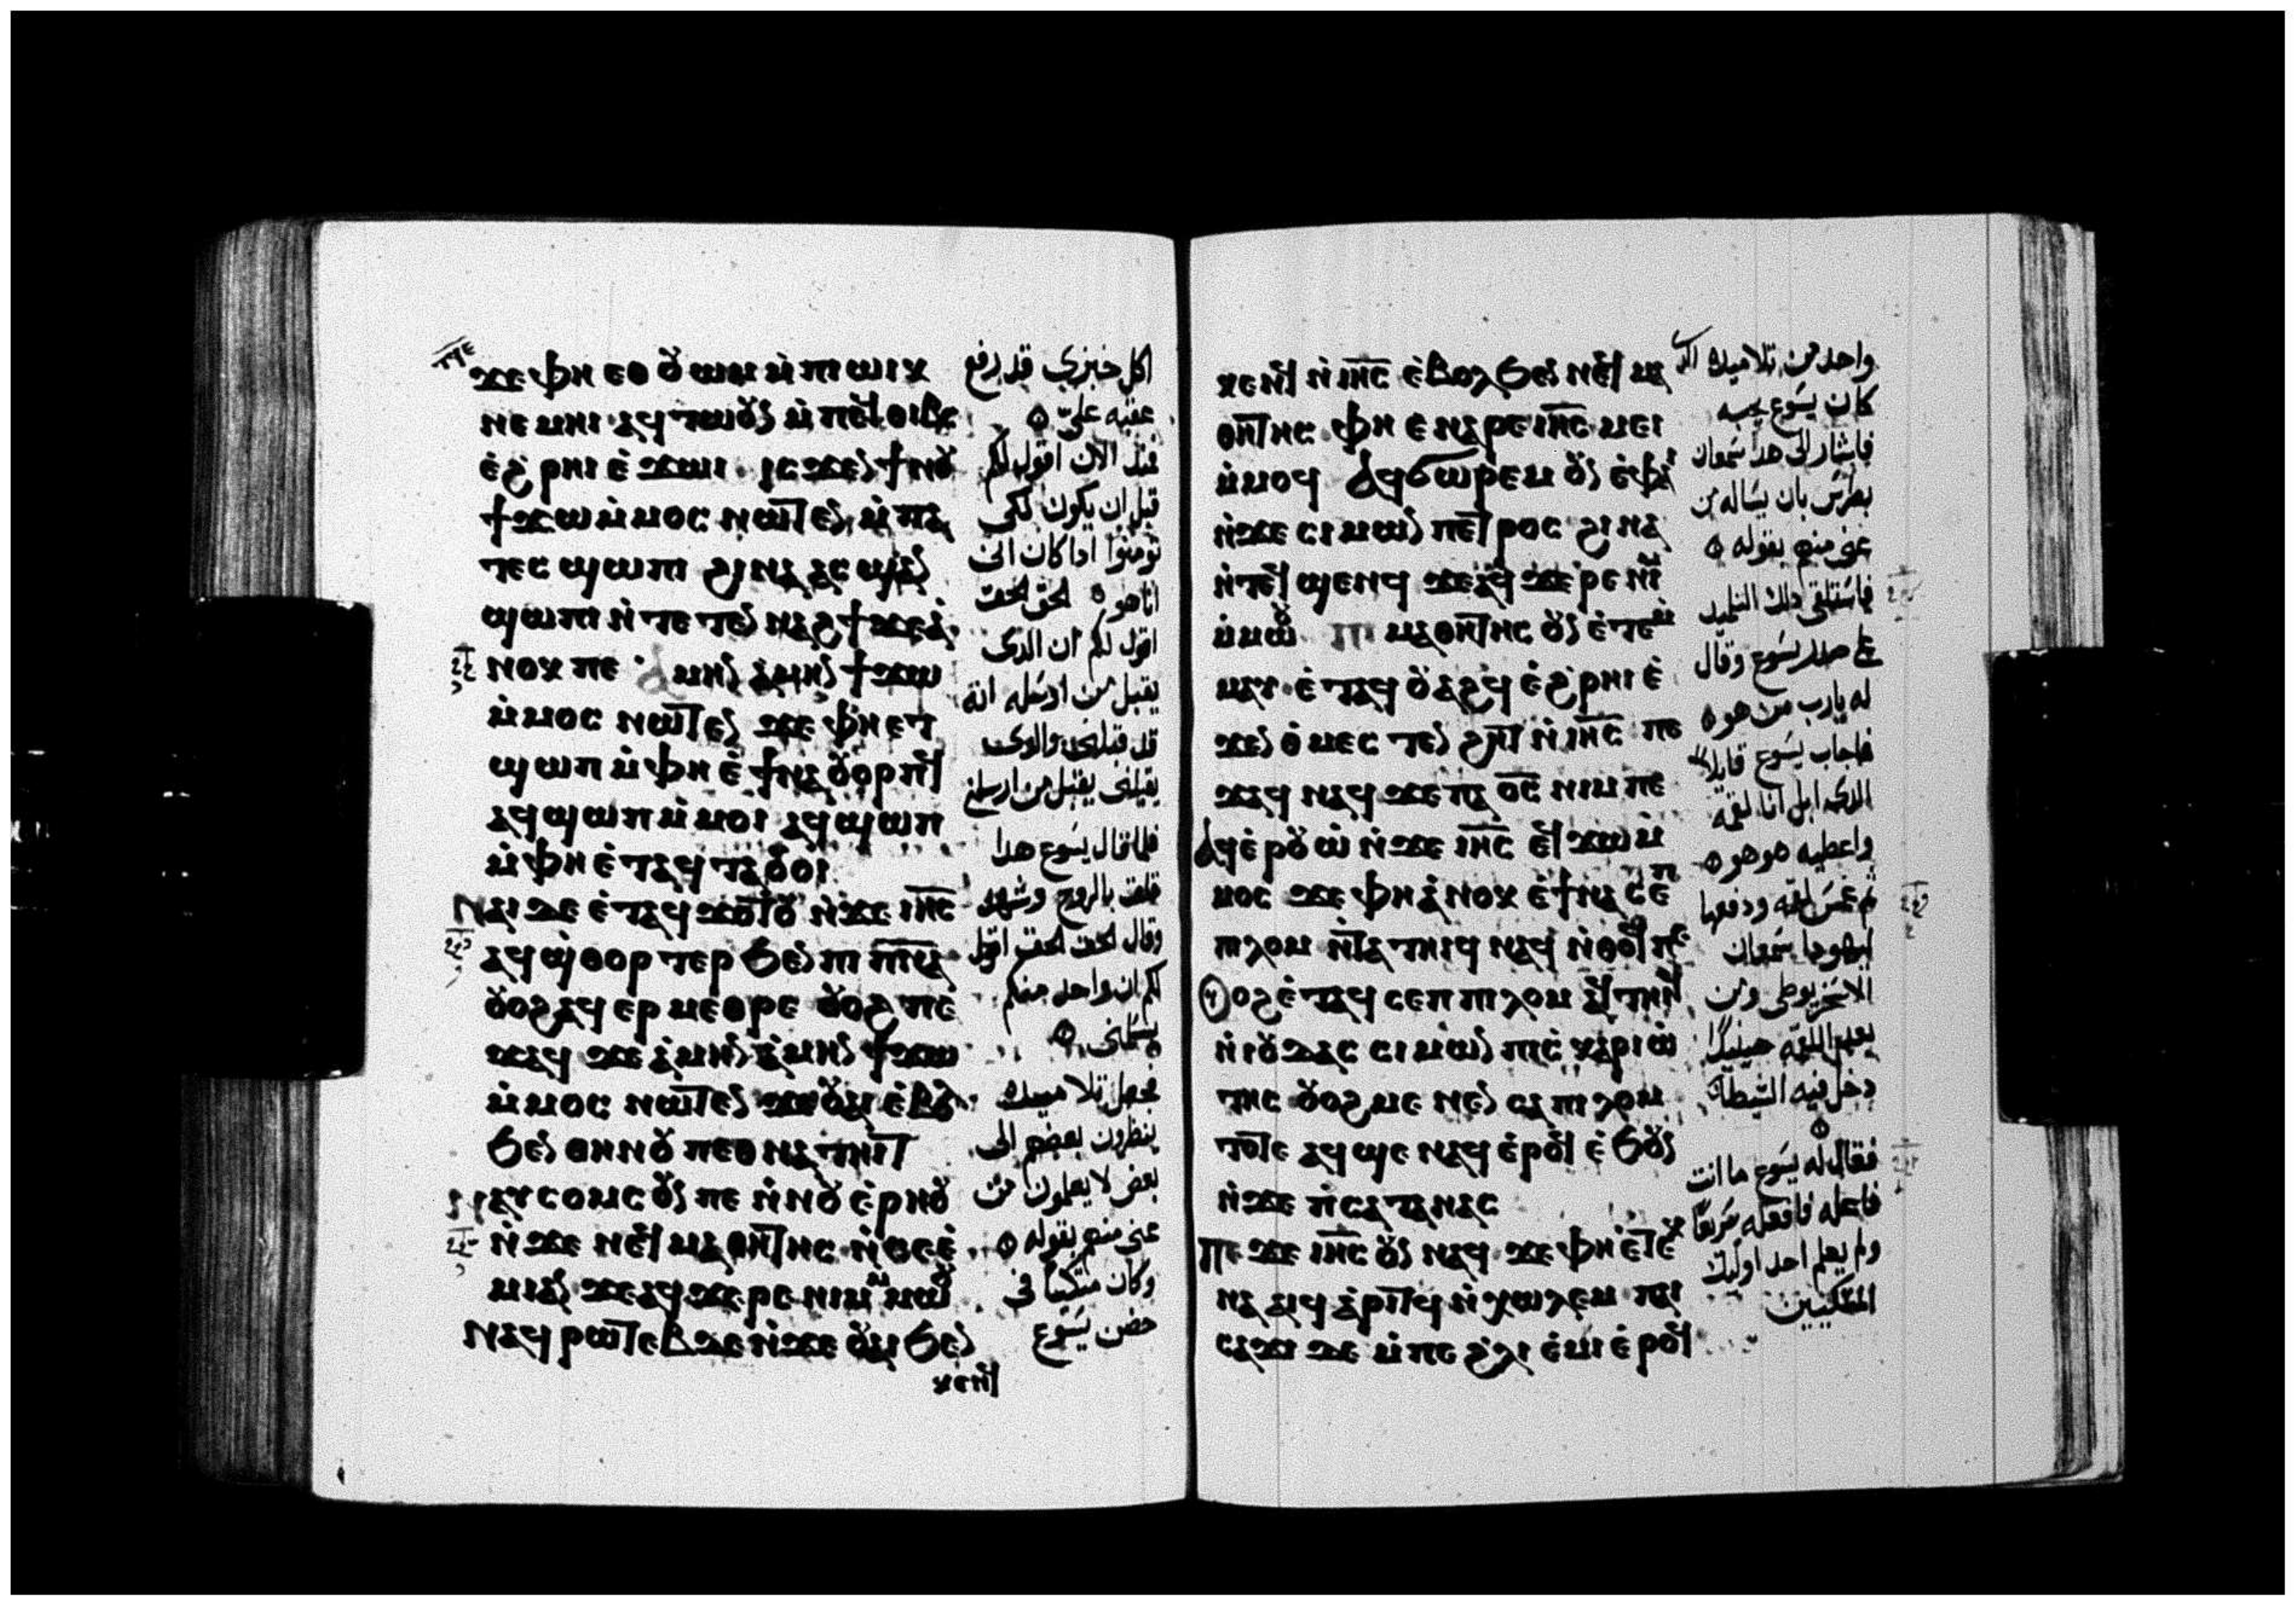 ϫⲉ ⲫⲏ ⲉⲑⲟⲩⲱⲙ ⲙ̇ⲡⲁⲱⲓⲕ
ⲛⲉⲙⲏⲓ ⲁϥⲧⲱⲟⲩⲛ ⲙ̇ⲡⲉϥⲑⲓⲃⲥ
ⲉ̇ϩⲣⲏⲓ ⲉ̇ϫⲱⲓ ⲓⲥϫⲉⲛ ϯⲛⲟⲩ
ϯϫⲱ ⲙ̇ⲙⲟⲥ ⲛⲱⲧⲉⲛ ⲙ̇ⲡⲁ
ⲧⲉⲥϣⲱⲡⲓ ϩⲓⲛⲁ ⲁⲥϣⲁⲛ
ϣⲱⲡⲓ ⲛ̇ⲧⲉⲧⲉⲛⲛⲁϩϯ ϫⲉ ⲁ̇
ⲛⲟⲕ ⲡⲉ ⲁⲙⲏⲛ ⲁⲙⲏⲛ ϯϫⲱ
ⲙ̇ⲙⲟⲥ ⲛⲱⲧⲉⲛ ϫⲉ ⲫⲏ ⲉⲧ
ϣⲱⲡ ⲙ̇ⲫⲏ ⲉ̇ϯⲛⲁⲟⲩⲟⲣⲡϥ
ⲁϥϣⲱⲡ ⲙ̇ⲙⲟⲓ ⲁϥϣⲱⲡ
ⲙ̇ⲫⲏ ⲉ̇ⲧⲁϥⲧⲁⲟⲩⲟⲓ
ⲛⲁⲓ ⲇⲉ ⲉ̇ⲧⲁϥϫⲟⲧⲟⲩ ⲛ̇ϫⲉ ⲓⲏ̅ⲥ̅
ⲁϥϣ̇ⲑⲟⲣⲧⲉⲣ ϧⲉⲛ ⲡⲓⲡ̅ⲛ̅ⲁ̅
ⲟⲩⲟϩ ⲁϥⲉⲣⲙⲉⲑⲣⲉ ⲟⲩⲟϩ ⲡⲉ
ϫⲁϥ ϫⲉ ⲁ̇ⲙⲏⲛ ⲁ̇ⲙⲏⲛ ϯϫⲱ
ⲙ̇ⲙⲟⲥ ⲛⲱⲧⲉⲛ ϫⲉ ⲟⲩⲁⲓ ⲉ̇ⲃⲟⲗ
ϧⲉⲛ ⲑⲏⲛⲟⲩ ⲡⲉⲑⲛⲁⲧⲏⲓⲧ
ⲛⲁⲩⲥⲟⲙⲥ ⲟⲩⲛ ⲡⲉ ⲛ̇ⲛⲟⲩⲉ̇ⲣⲏⲟⲩ
ⲛ̇ϫⲉ ⲛⲉϥⲙⲁⲑⲏⲧⲏⲥ ⲛ̇ⲥⲉⲉ̇
ⲙⲓ ⲁⲛ ϫⲉ ⲁϥϫⲉⲣⲉ ⲛⲓⲙ ⲙ̇ⲙⲱⲟⲩ
ⲛⲁϥⲣⲱⲧⲉⲃ ⲇⲉ ⲛ̇ϫⲉ ⲟⲩⲁⲓ ϧⲉⲛ
ⲕⲉⲛϥ
اكل خبزي قد رفع
عقبه عليّ
فمنذ الان اقول لكم
قبل ان يكون لكى
تومنوا اذا كان انى
انا هو الحق الحق
اقول لكم ان الدى
يقبل من ارسله انه
قد قبلنى والدى
يقبلنى يقبل من ارسلنى
فلما قال يسوع هدا
قلق بالروح وشهد
وقال الحق الحق اقول
لكم ان واحد منكم
يسلمنى
فجعل تلاميده
ينظرون بعضهم الى
بعض لا يعلمون من
عنى منهم بقوله
وكان متكيا فى
حضن يسوع
ⲕⲉⲛϥ ⲛ̇ⲓⲏ̅ⲥ̅ ⲉ̇ⲃⲟⲗϧⲉⲛ ⲛⲉϥⲙⲁ
ⲑⲏⲧⲏⲥ ⲫⲏ ⲉⲛⲁⲣⲉ ⲓⲏ̅ⲥ̅ ⲙⲉⲓ
ⲙ̇ⲙⲟϥ ⲁϥϭⲱⲣⲉⲙ ⲟⲩⲛ ⲉ̇ⲫⲁⲓ
ⲛ̇ϫⲉ ⲥⲓⲙⲱⲛ ⲡⲉⲧⲣⲟⲥ ϩⲓⲛⲁ
ⲛ̇ⲧⲉϥϣⲉⲛϥ ϫⲉ ⲁϥϫⲉⲣⲉ ⲛⲓⲙ
ⲙ̇ⲙⲱⲟⲩ ⲡⲓⲙⲁⲑⲏⲧⲏⲥ ⲟⲩⲛ ⲉ̇ⲧⲉⲙ̇
ⲙⲁⲩ ⲉ̇ⲧⲁϥⲟⲩⲁϩϥ ⲉ̇ϩⲣⲏⲓ ⲉ̇
ϫⲉⲛ ⲑ̇ⲙⲉⲥⲧⲉⲛϩⲏⲧ ⲛ̇ⲓⲏ̅ⲥ̅ ⲡⲉ
ϫⲁϥ ⲛⲁϥ ϫⲉ ⲡⲁⲟ̅ⲥ̅ ⲛⲓⲙ ⲡⲉ
ⲁϥⲉ̇ⲣⲟⲩⲱ̇ ⲛ̇ϫⲉ ⲓⲏ̅ⲥ̅ ⲉϥϫⲱ ⲙ̇
ⲙⲟⲥ ϫⲉ ⲫⲏ ⲁ̇ⲛⲟⲕ ⲉ̇ϯⲛⲁⲥⲉⲡ
ⲡⲓⲗⲱⲙ ⲛ̇ⲧⲁⲧⲏⲓϥ ⲛⲁϥ ⲛ̇ⲑⲟϥ ⲡⲉ
ⲟⲩⲟϩ ⲉ̇ⲧⲁϥⲥⲉⲡ ⲡⲓⲗⲱⲙ ⲁϥⲧⲏⲓϥ
ⲛ̇ⲓⲟⲩⲇⲁⲥ ⲥⲓⲙⲱⲛ ⲡⲓⲥⲕⲁⲣⲓⲱ̇
ⲧⲏⲥ ⲟⲩⲟϩ ⲙⲉⲛⲉⲛⲥⲁ ⲡⲓⲗⲱⲙ
ⲧⲟⲧⲉ ⲁϥϣⲉ ⲛⲁϥ ⲉ̇ⲣⲟϥ ⲉ̇ϧⲟⲩⲛ
ⲛ̇ϫⲉ ⲡ̇ⲥⲁⲧⲁⲛⲁⲥ
ⲡⲉϫⲉ ⲓⲏ̅ⲥ̅ ⲟⲩⲛ ⲛⲁϥ ϫⲉ ⲫⲏ ⲉ̇ⲧⲉⲕ
ⲛⲁⲁⲓϥ ⲁ̇ⲣⲓⲧϥ ⲛ̇ⲭⲱⲗⲉⲙ ⲡⲁⲓ
ⲥⲁϫⲓ ⲇⲉ ⲙ̇ⲡⲉ ϩ̇ⲗⲓ ⲉ̇ⲙⲓ ⲉ̇ⲣⲟϥ
واحد من تلاميده الدى
كان يسوع يحبه
فاشار الى هدا سمعان
بطرس بان يساله من
عنى منهم بقوله
فاستلقى دلك التلميد
على صدر يسوع وقال
له يارب من هو
فاجاب يسوع قايلا
الدى ابل انا لقمه
واعطيه هو هو
ثم غمس لقمه ودفعها
ليهودا سمعان
الاسخريوطى ومن
بعد اللقمه حينيدا
دخل فيه الشيطان
فقال له يسوع ما انت
فاعله فافعله سريعا
ولم يعلم احد اوليك
المتكيين